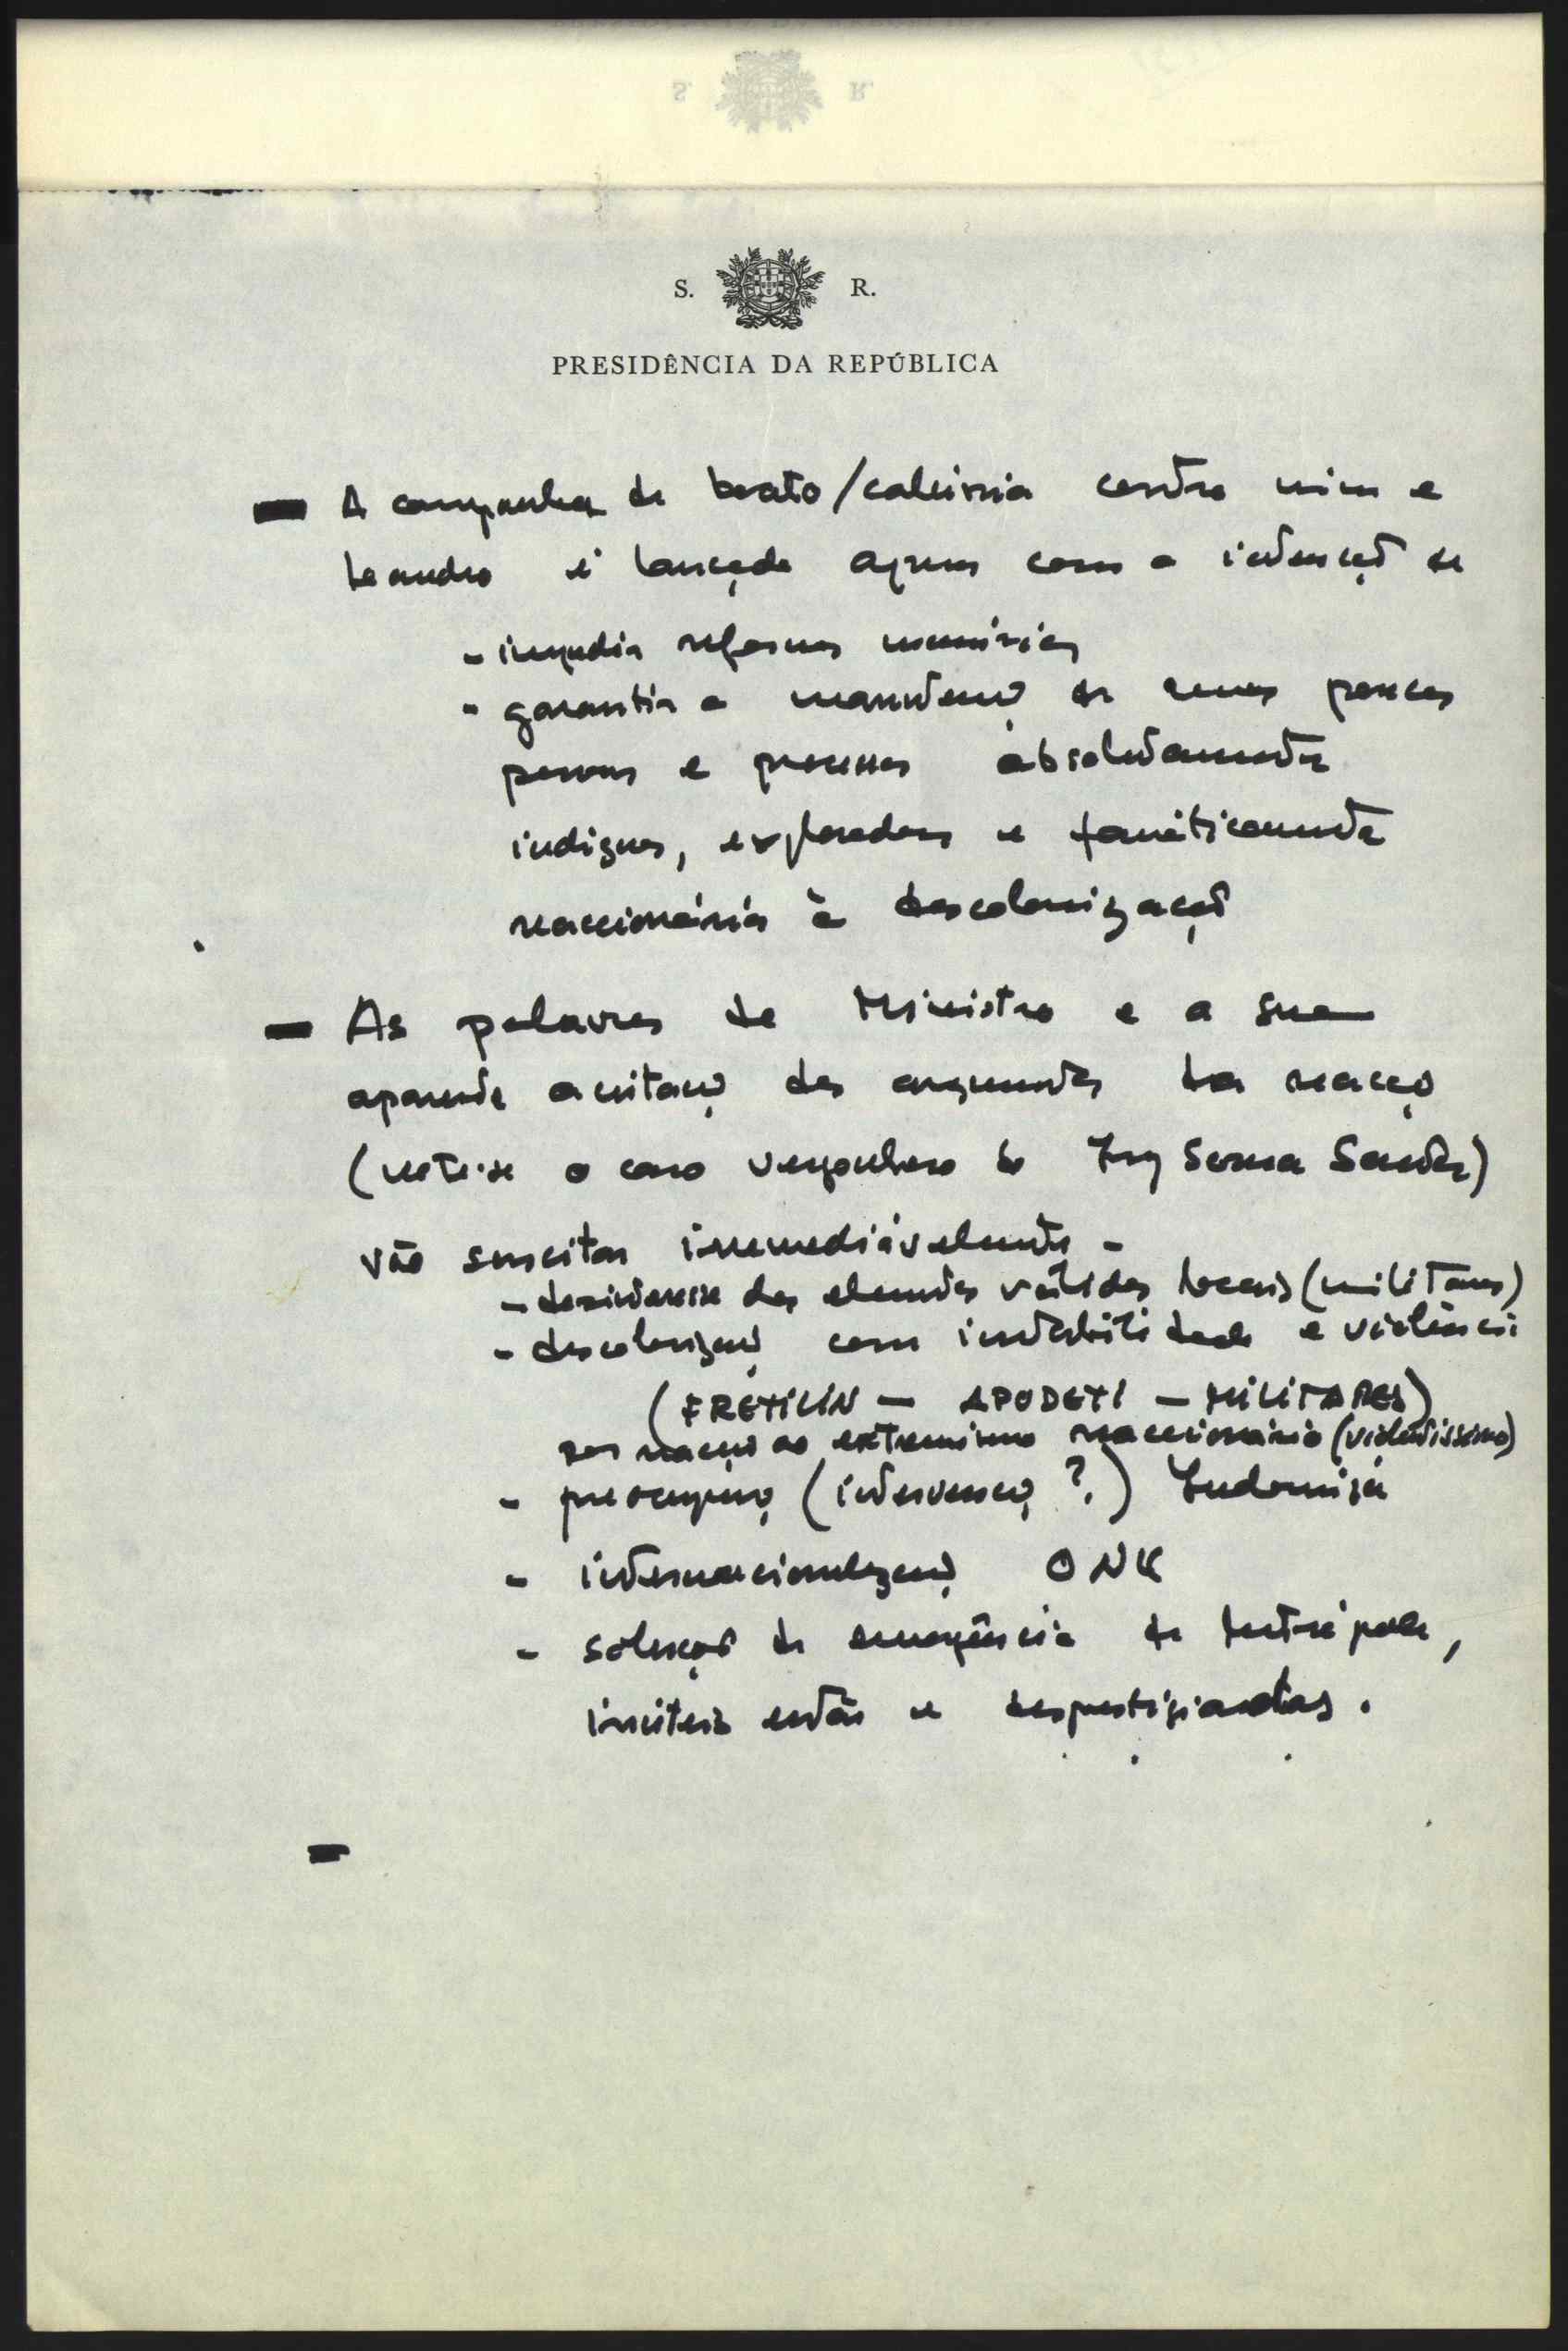 S. R.
PRESIDÊNCIA DA REPÚBLICA
— A campanha de boato/calúnia contra mim e
Leandro é lançada apenas com a intenção de
- impedir reformas
- garantir a manutenção de umas poucas
pessoas e processos absolutamente
indignos, exploradores e fanáticamente
reaccionários à descolonização
— As palavras do Ministro e a sua
aparente aceitação dos argumentos da reacção
(note-se o caso vergonhoso do Eng Sousa Santos)
vão suscitar irremediávelmente -
- desinteresse dos elementos válidos locais (militares)
- descolonização com instabilidade e violência
(FRETILIN — APODETI — MILITARES)
por reacção ao extremismo reaccionário (violentíssimo)
- preocupação (intervenção ?.) Indonésia
- internacionalização ONU
- soluções de emergência da metrópole,
inúteis então e desprestigiandas.
—